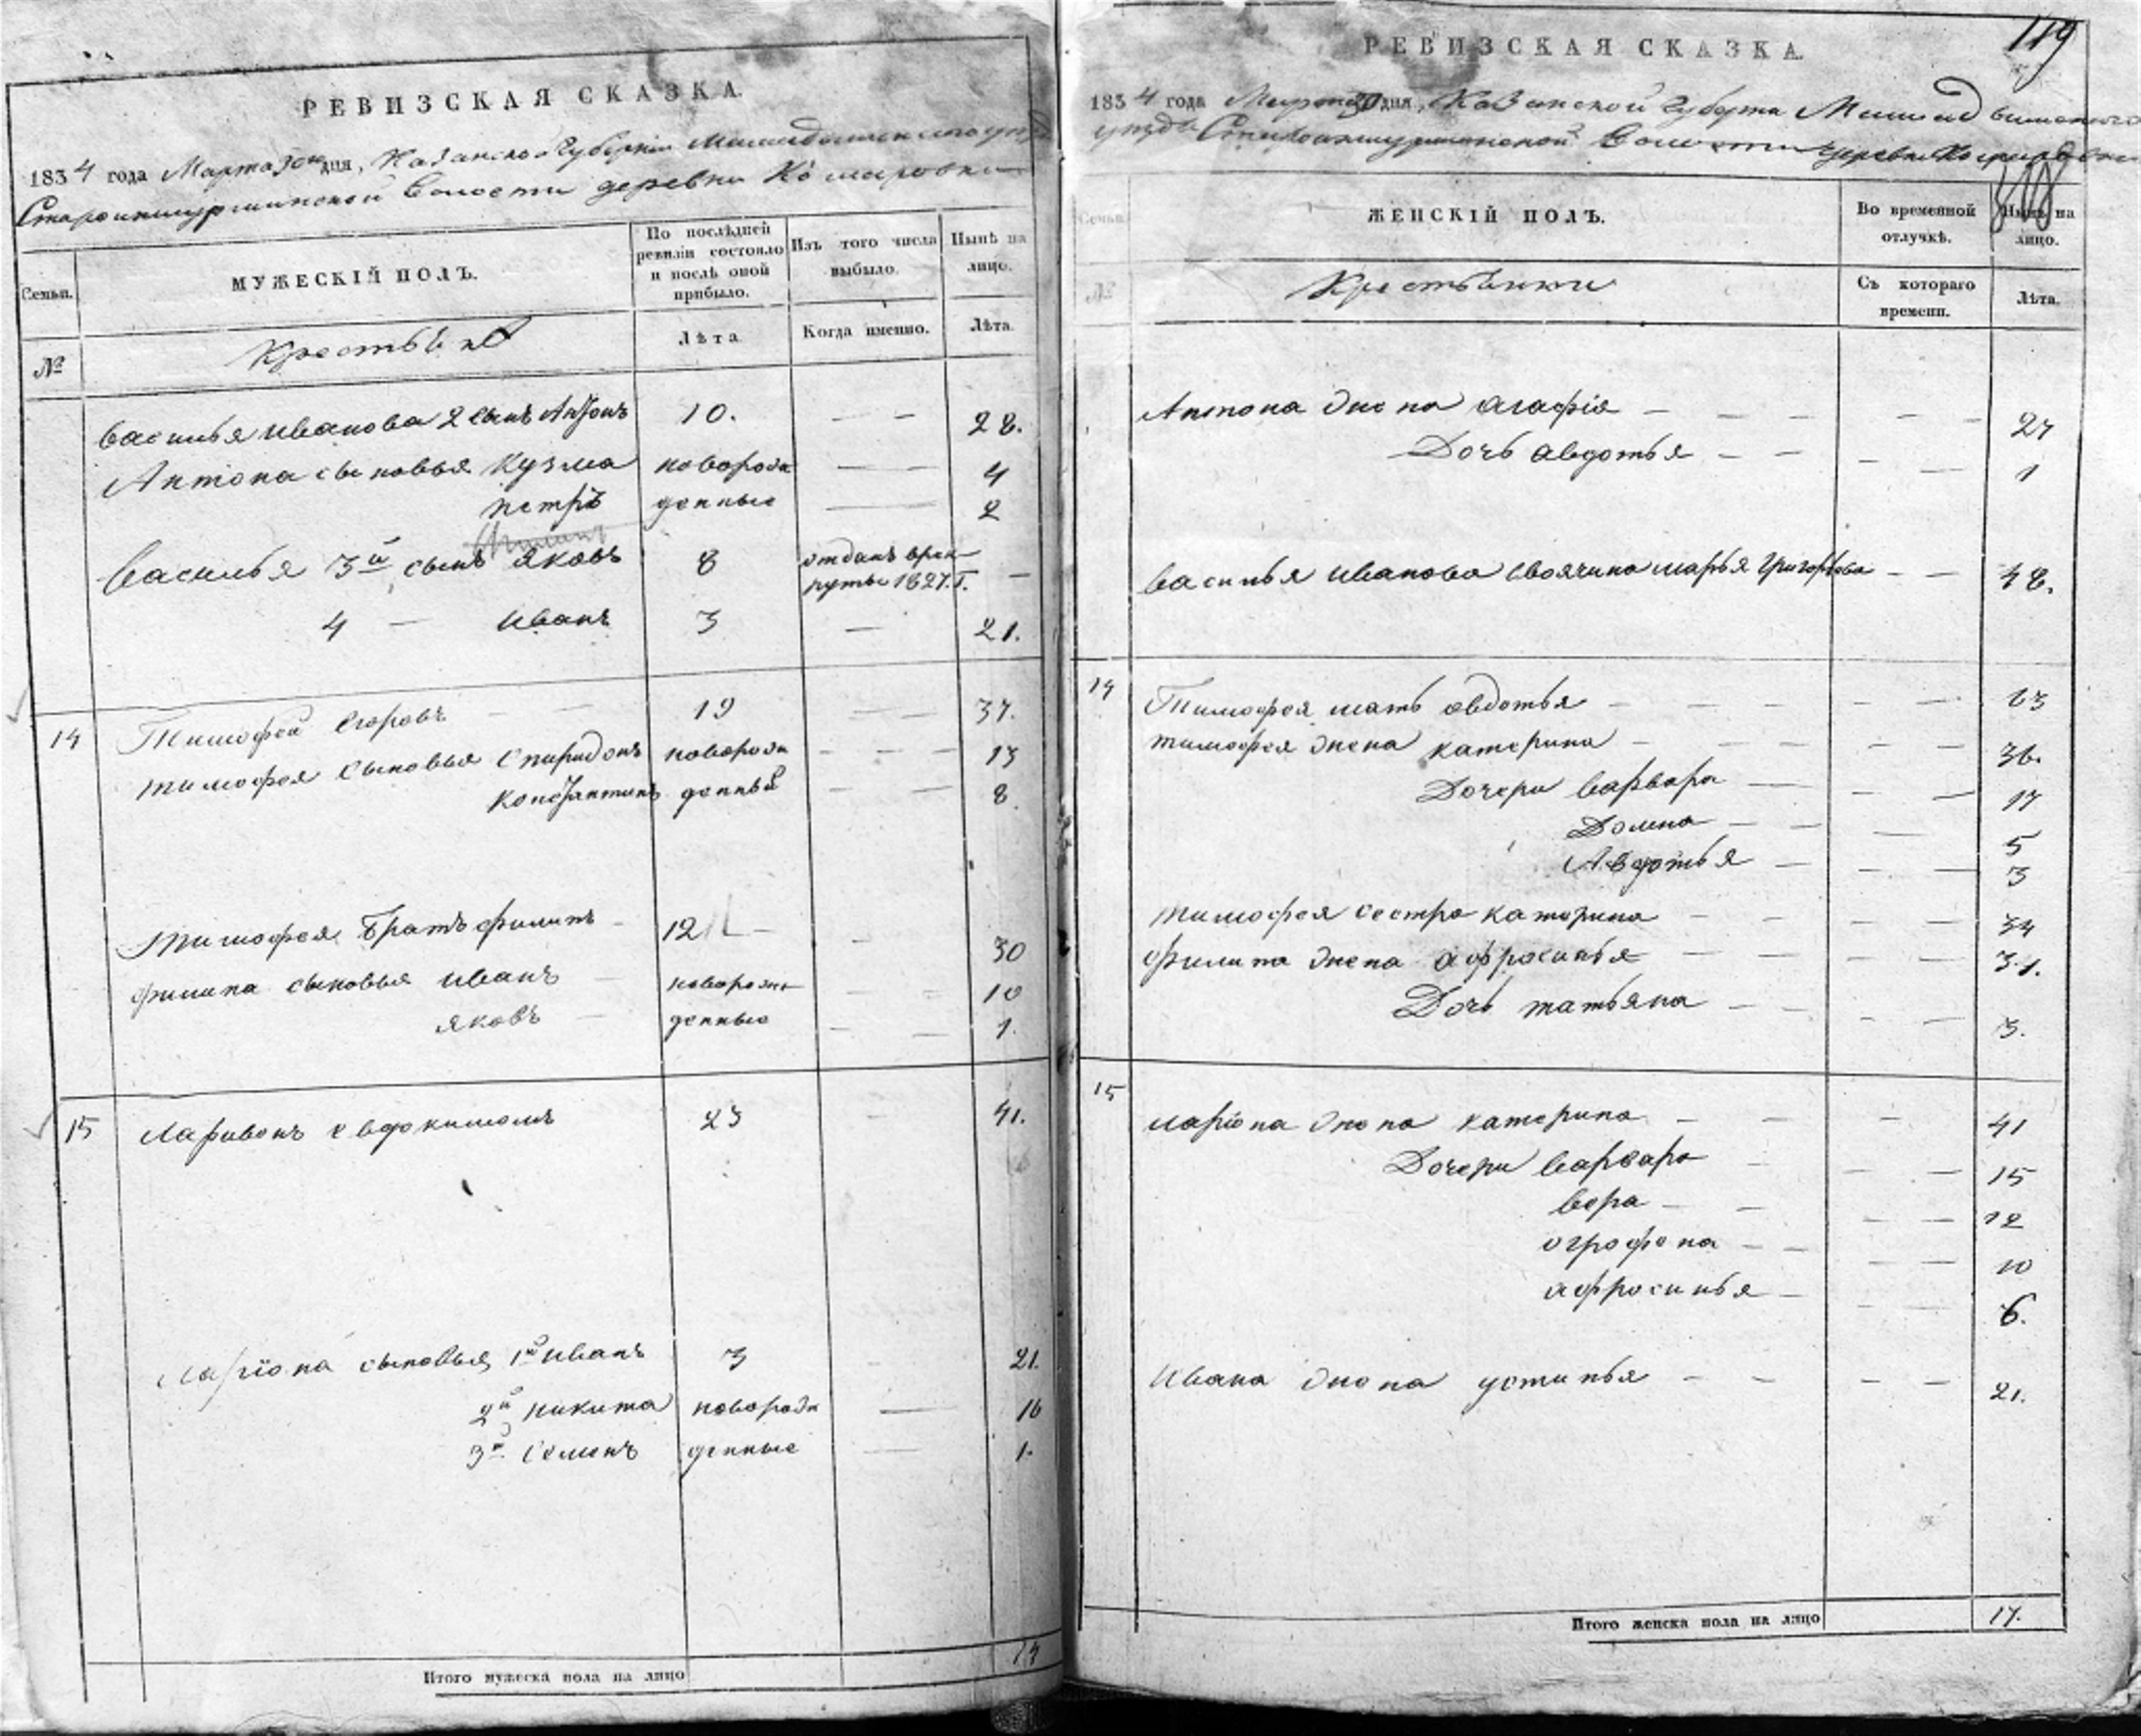 РЕВИЗСКАЯ СКАЗКА.
1834 года Марта 30 дня, Казанской Губерніи
Волости деревни Комаровки
Семьи.
МУЖЕСКІЙ ПОЛЪ.
По послѣдней ревизіи состояло и послѣ оной прибыло.
Изъ того числа выбыло.
Нынѣ на лицо.
№
Крестьянѣ
Лѣта
Когда именно.
Лѣта.
Василья Иванова 2 сынъ Антонъ 10. — — 28.
Антона сыновья Кузма новорож — — 4
Петръ денные — 2
Василья 3й сынъ Яковъ 8 отданъ врек руты 1827. Г. —
4 — Иванъ 3 — 21.
14 Тимофей Егоровъ — — 19 — — 37.
Тимофея сыновья Спиридонъ новорож — — — 13
Константинъ денный — — 8
Тимофея братъ Филипъ — 12 — — 30
Филипа сыновья Иванъ — новорож — — 10
Яковъ — денные — — 1.
15 Ларивонъ Евдокимовъ 23 — 41.
Ларіона сыновья 1й Иванъ 3 — 21.
2й Никита новорож — 16
3й Семенъ денные — 1.
Итого мужеска пола на лицо 14
119
РЕВИЗСКАЯ СКАЗКА.
1834 года Марта 30 дня, Казанской Губерніи
уезда Волости деревни Комаровки
Семьи.
ЖЕНСКІЙ ПОЛЪ.
Во временной отлучкѣ.
Нынѣ на лицо.
№
Крестьянки
Съ котораго времени.
Лѣта.
Антона жена Агафія — — — 27
Дочь Авдотья — — — — 1
Василья Иванова своячина Марья Григорьева — — 48.
14 Тимофея мать Авдотья — — — — — 63
Тимофея жена Катерина — — — — — 36.
Дочери Варвара — — — 17
Домна — — — — 5
Авдотья — — — 3
Тимофея сестра Катерина — — — — 34
Филипа жена Афросинья — — — — 31.
Дочь Татьяна — — — — 3.
15 Ларіона жена Катерина — — — 41
Дочери Варвара — — — 15
Вера — — — — 12
Огрофена — — — — 10
Афросинья — — — 6.
Ивана жена Устинья — — — — 21.
Итого женска пола на лицо 17.